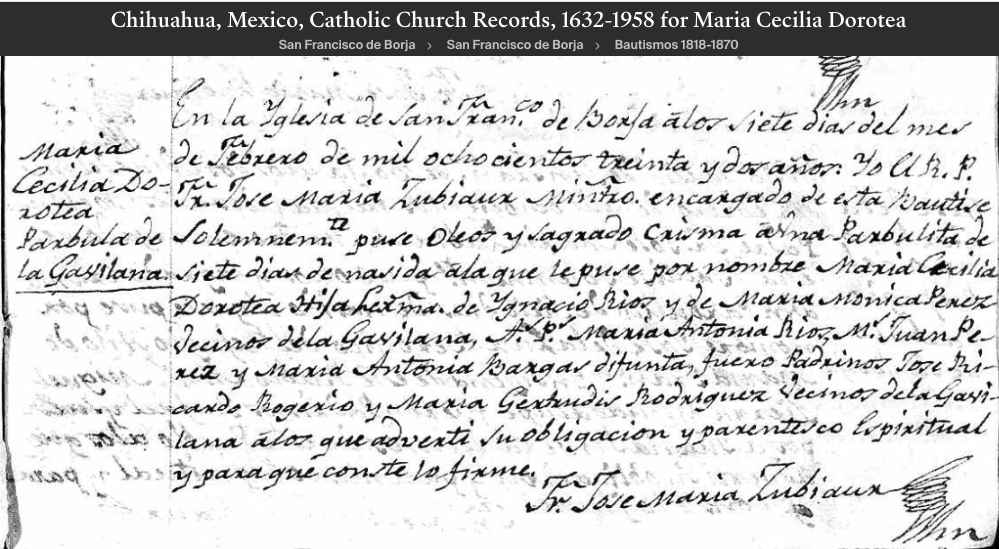 Chihuahua, Mexico, Catholic Church Records, 1632-1958 for Maria Cecilia Dorotea
San Francisco de Borja > San Francisco de Borja > Bautismos 1818-1870
Maria
Cecilia Do-
rotea
Parbula de
la Gavilana
En la Yglesia de San Fran.co de Borja â los siete dias del mes
de Febrero de mil ochocientos treinta y dos años: Yo el R. P.
Fr. Jose Maria Zubiaur Mintro. encargado de esta Bautise
Solemnem.te puse Oleos y sagrado Crisma â vna Parbulita de
siete dias de nasida âla que le puse por nombre Maria Cecilia
Dorotea Hija Lexma. de Ygnacio Rios y de Maria Monica Perez
Vecinos dela Gavilana, A.s P.s Maria Antonia Rios, M.s Juan Pe-
rez y Maria Antonia Bargas difunta, fuero Padrinos Jose Ri-
cardo Rogerio y Maria Gertrudis Rodriguez Vecinos dela Gavi-
lana âlos que adverti su obligacion y parentesco Espiritual
y para que conste lo firme.
Fr. Jose Maria Zubiaur